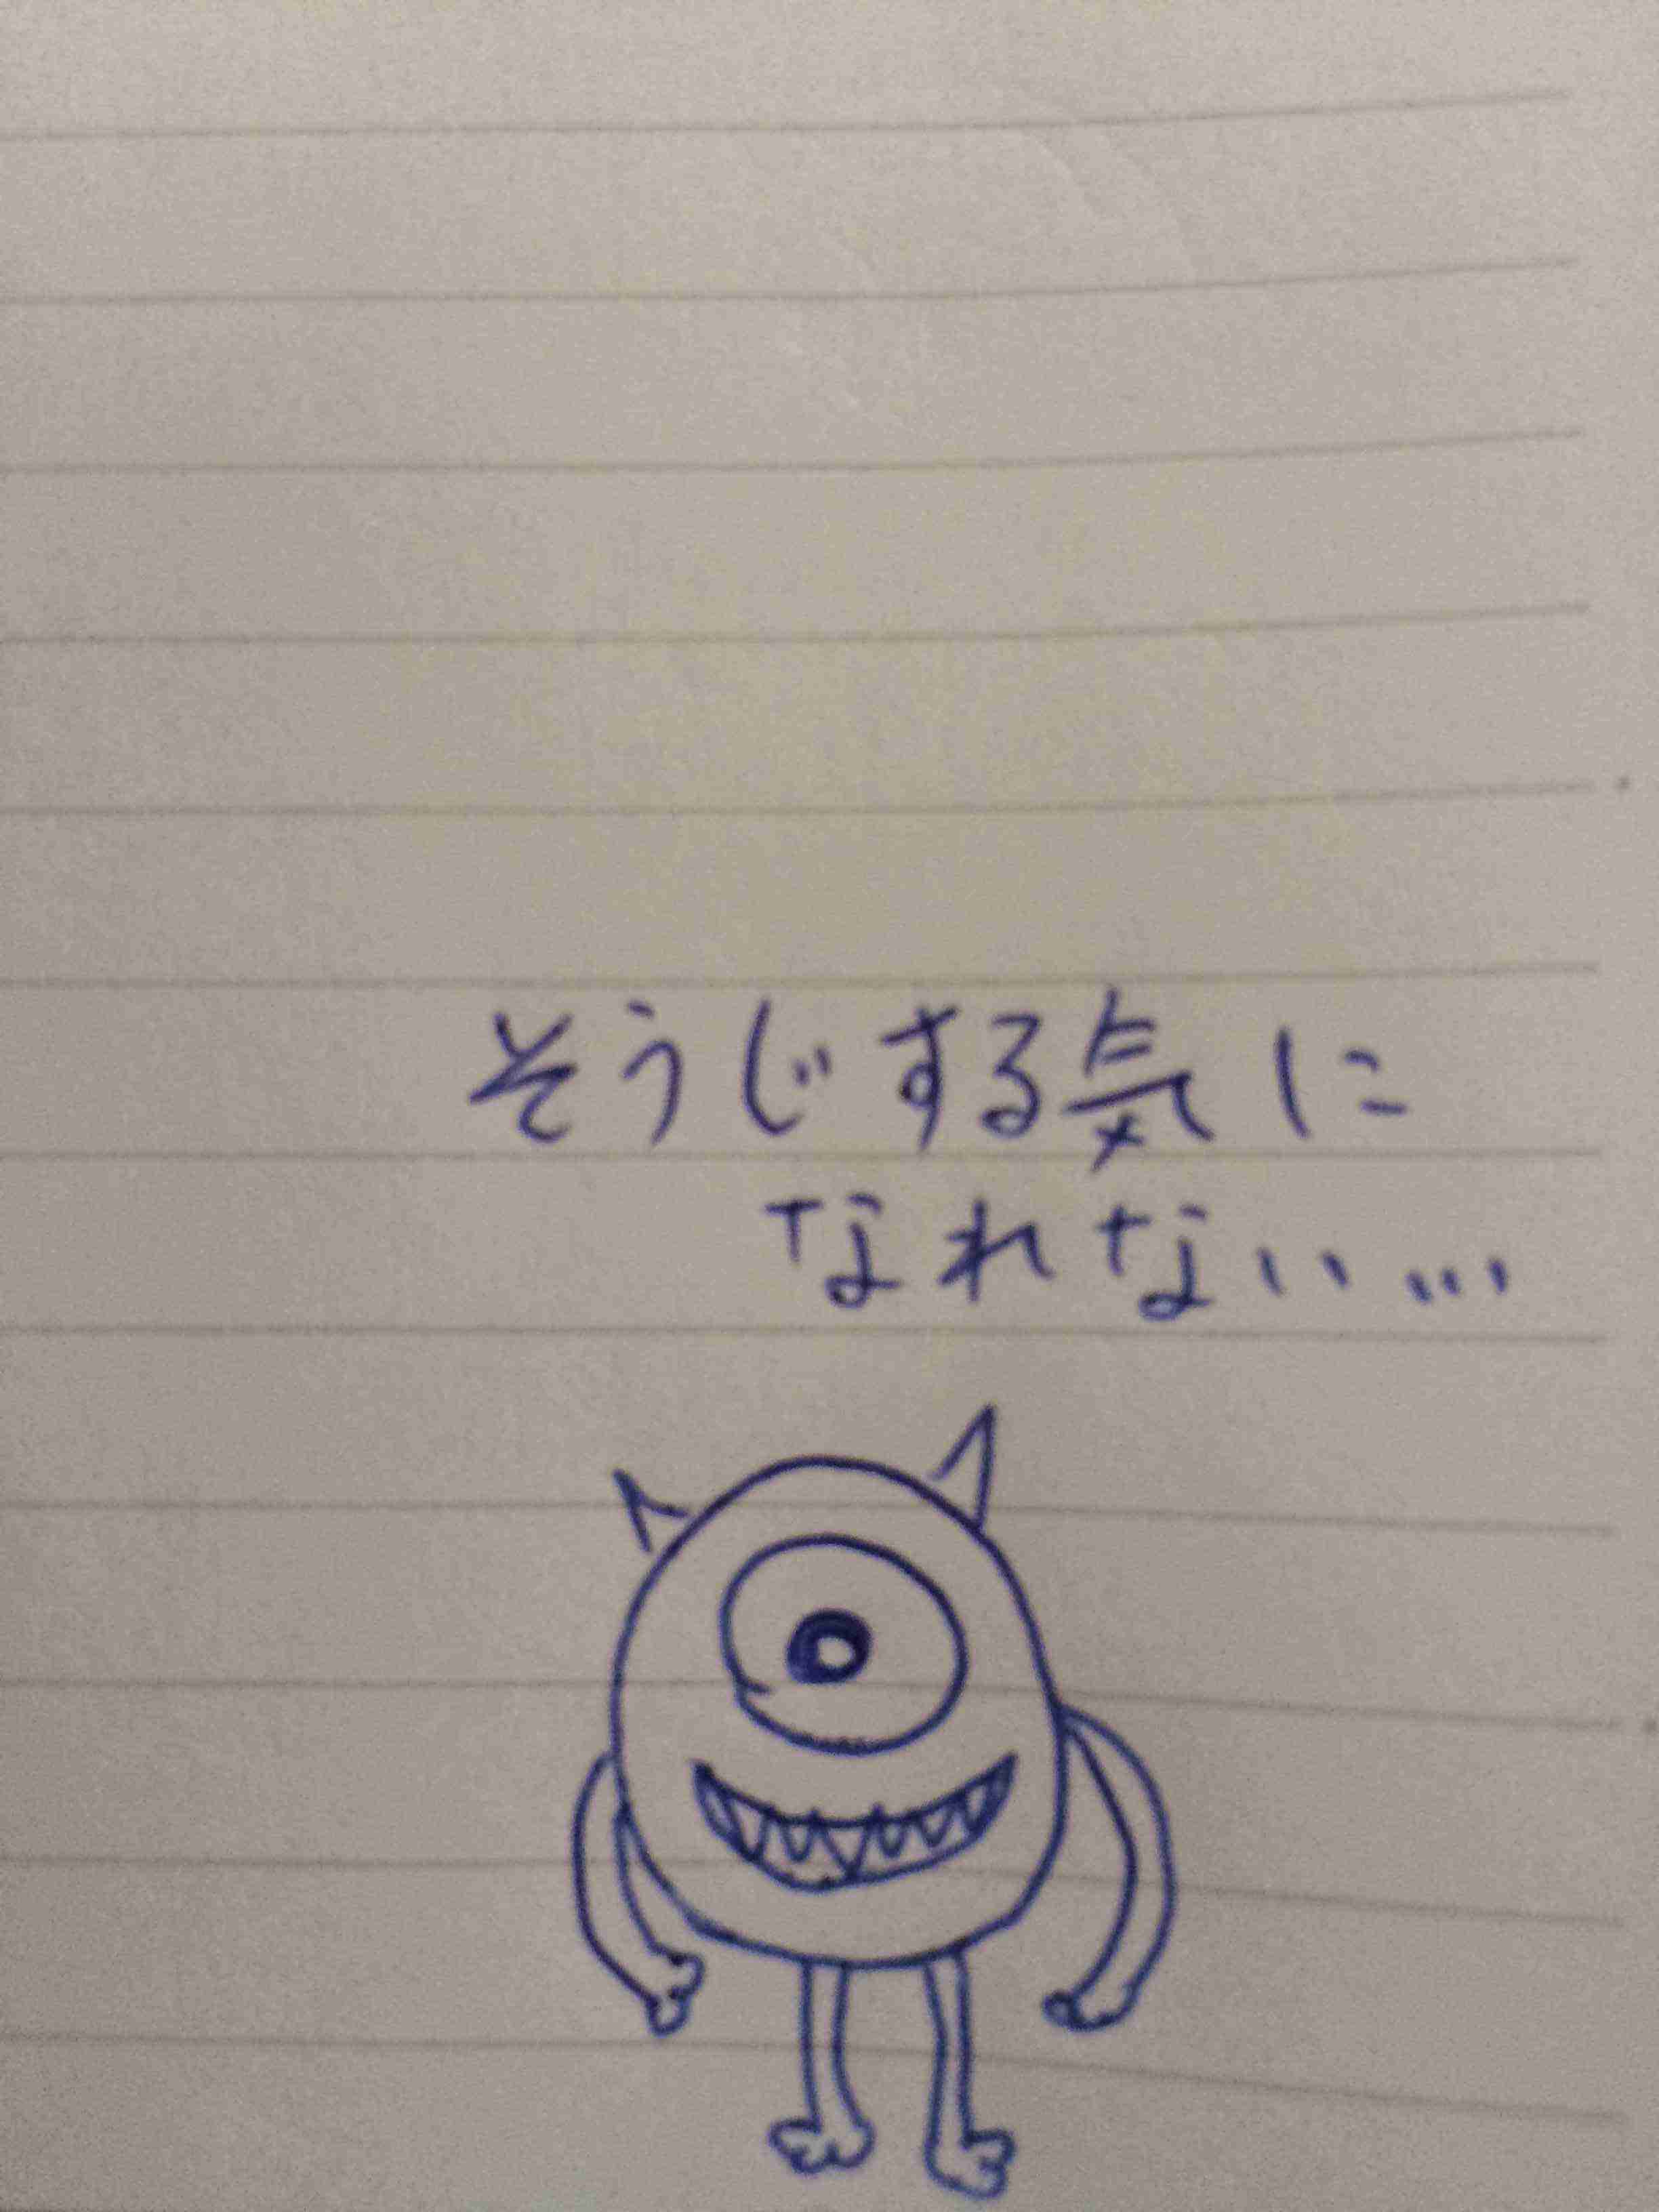 そうじする気に
なれない...